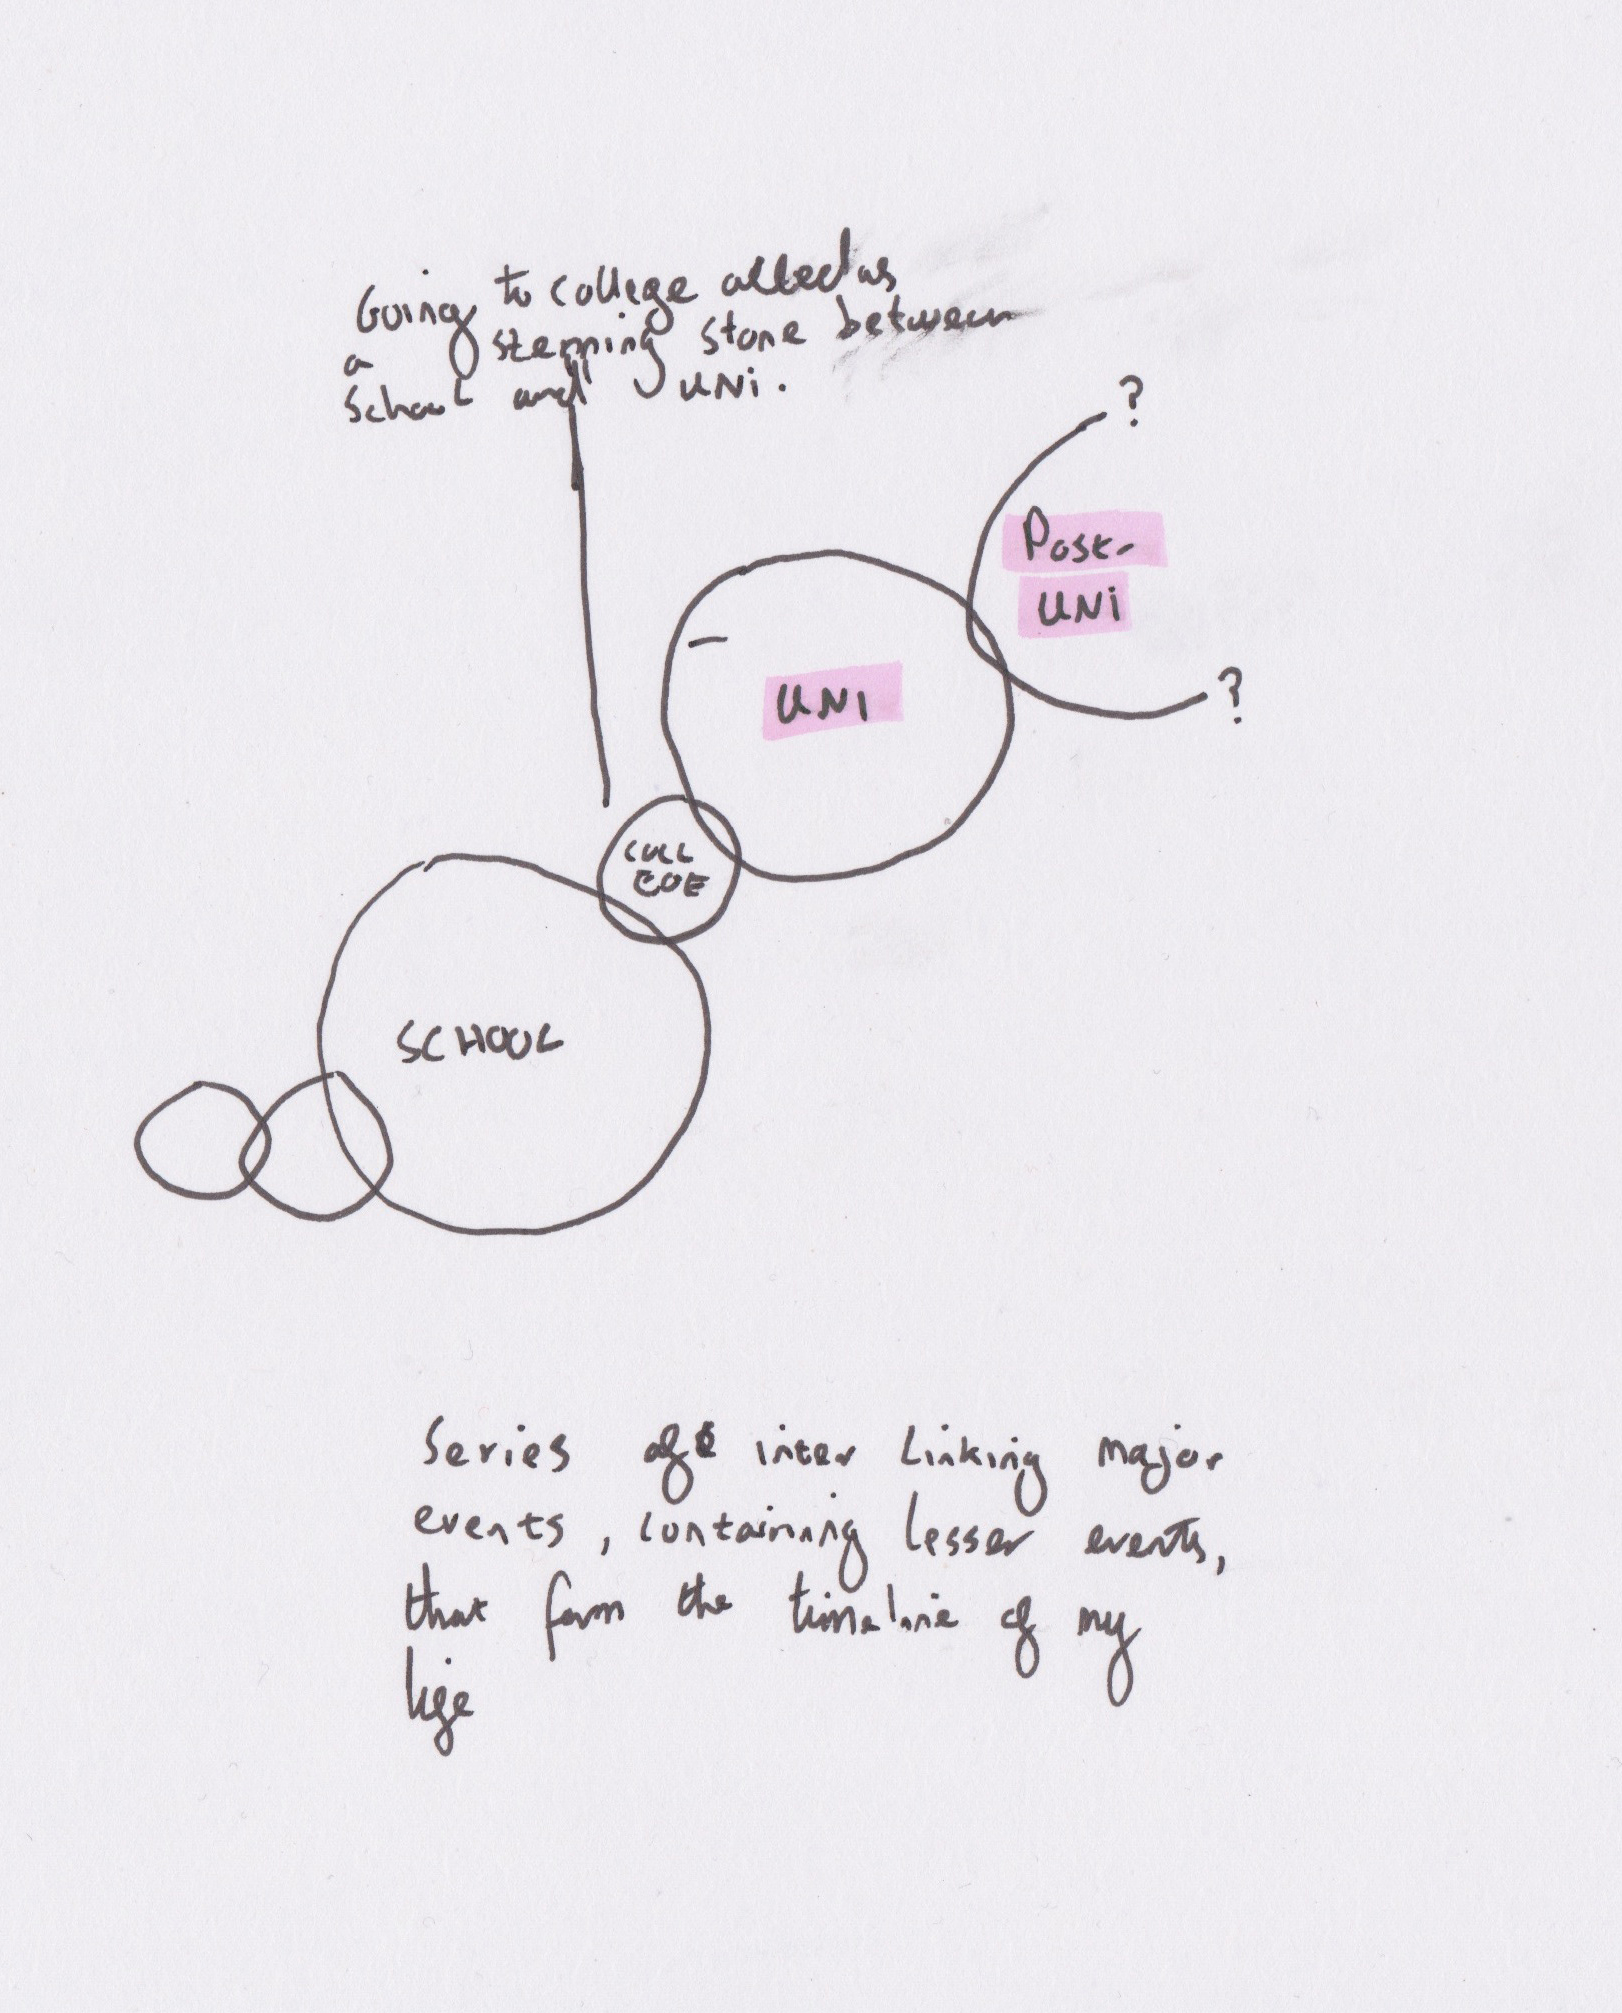 Going to college acted as
a stepping stone between
School and UNi.
?
Post-
UNi
?
UNI
COLL
EGE
SCHOOL
Series of inter linking major
events, containing lesser events,
that form the timeline of my
life